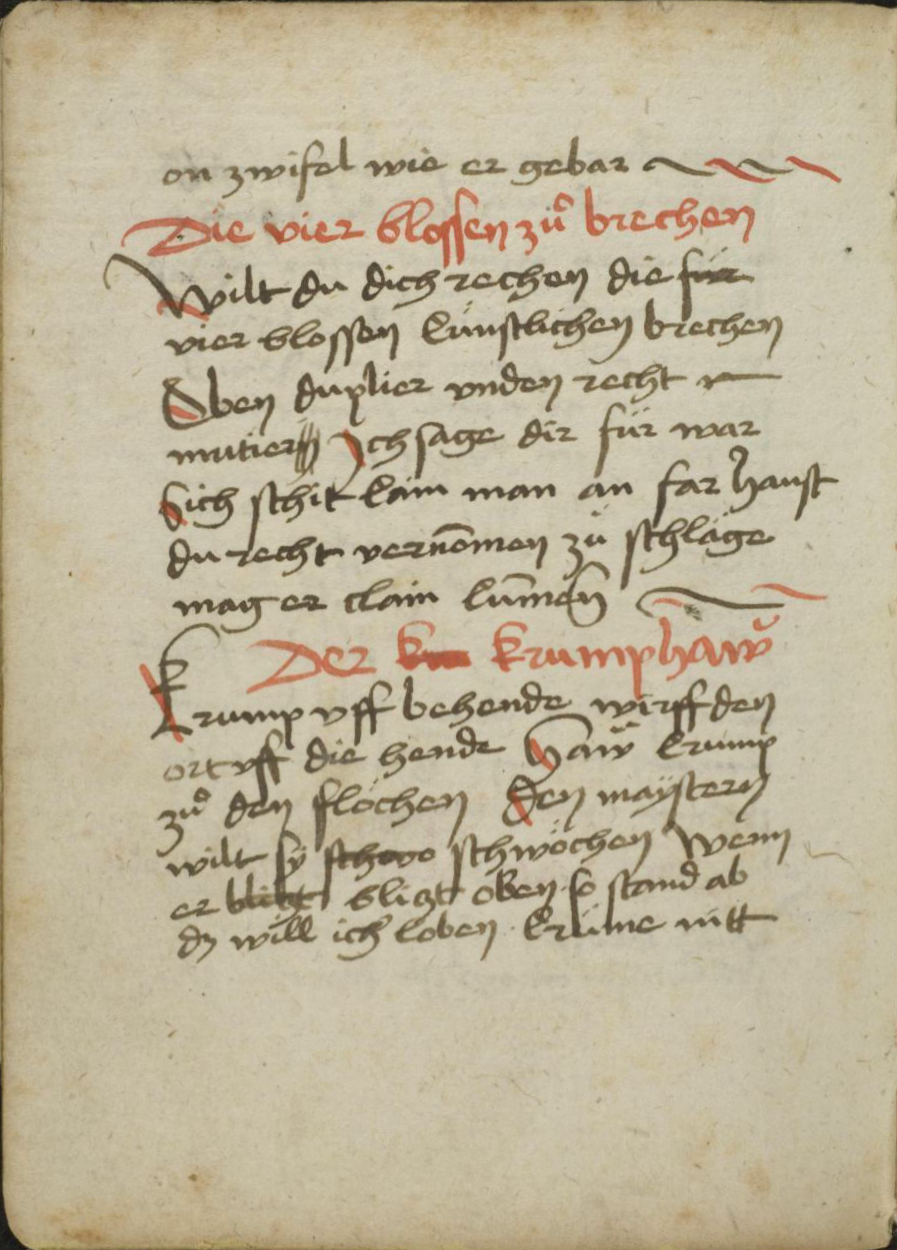 on zwifel wie er gebar
Die vier blossen zů brechen
Wilt du dich rechen die für
vier blossen künstlichen brechen
Oben duplier vnden recht
mutier Ich sage dir für war
Sich schitz kain man an far haust
du recht vernōmen zů schläge
mag er clain kūmen
Der krumphaw̆
Krump vff behende wirff den
ort vff die hende haw̆ krump
zů den flöchen den maÿstern
wilt sÿ schwöchen Wenn
er bligt oben so stand ab
dz will ich loben krüme nitt